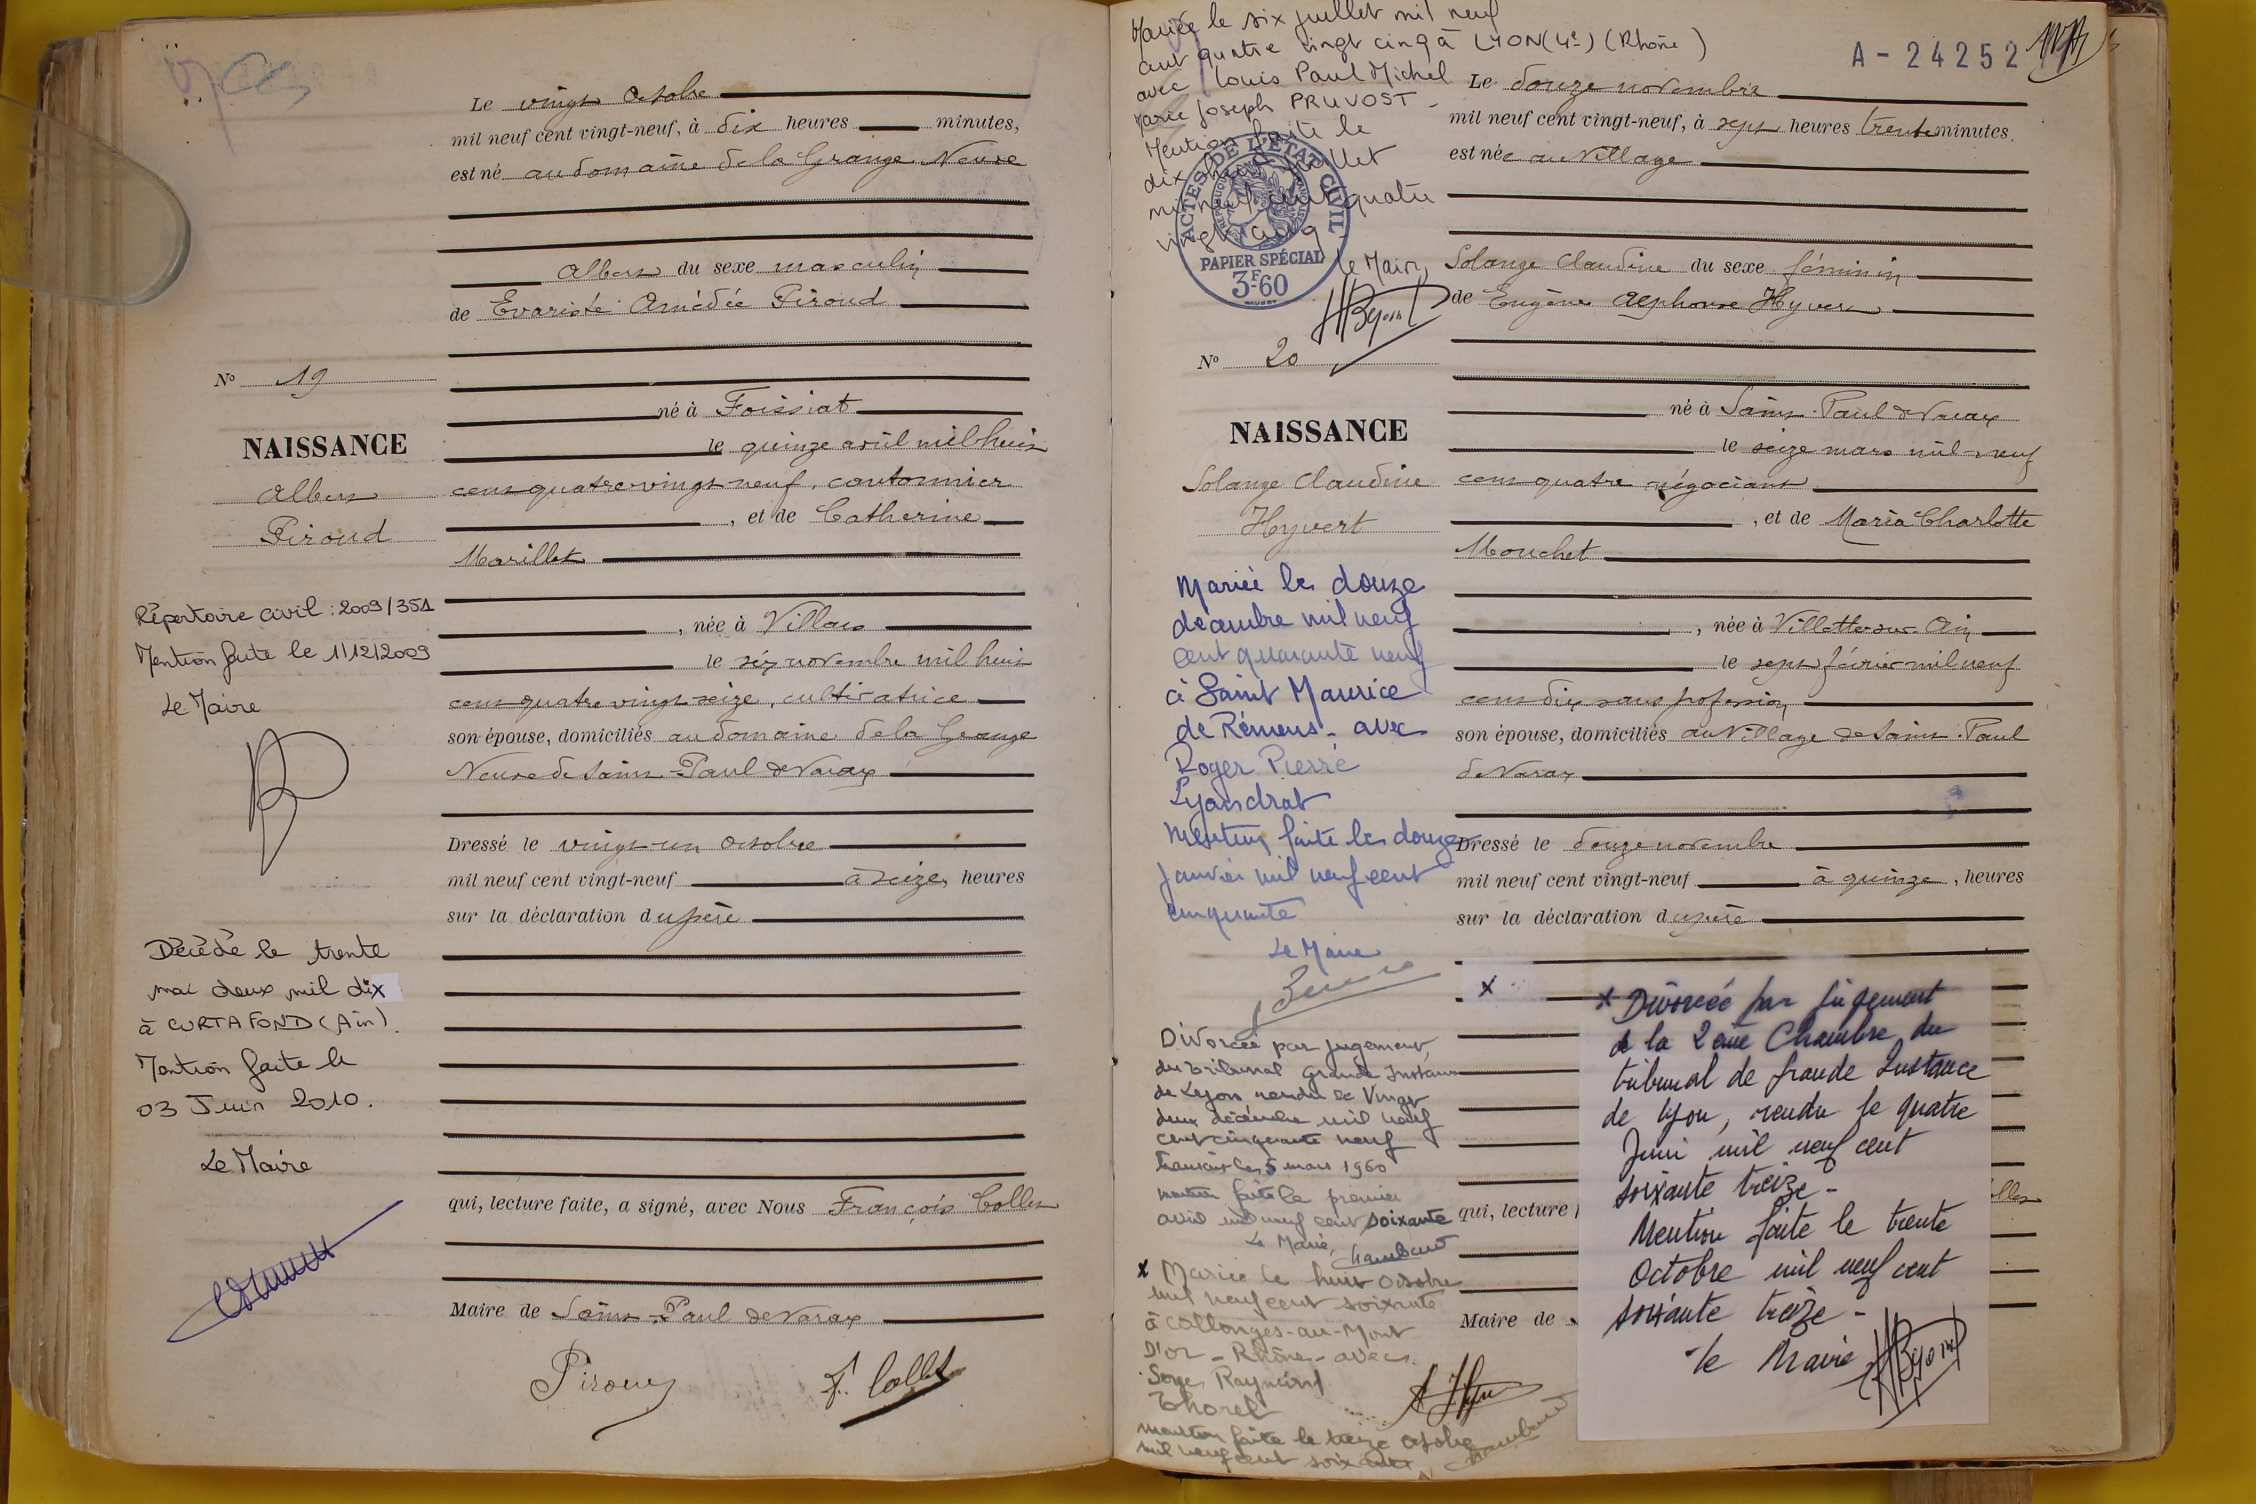 Le vingt Octobre
mil neuf cent vingt-neuf, à dix heures minutes,
est né au domaine de la Grange Neuve
Albert du sexe masculin
de Evariste Amédée Piroud
N° 19
né à Foissiat
NAISSANCE
le quinze avril mil huit
Albert
cent quatre vingt neuf, cantonnier
Piroud
, et de Catherine
Marillet
Répertoire civil : 2009/351
, née à Villars
Mention faite le 1/12/2009
le six novembre mil huit
Le Maire
cent quatre vingt seize, cultivatrice
son épouse, domiciliés au domaine de la Grange
Neuve de Saint-Paul de Varax
Dressé le vingt un Octobre
mil neuf cent vingt-neuf à seize, heures
sur la déclaration du père
Décédé le trente
mai deux mil dix
à CURTAFOND (Ain).
Mention faite le
03 Juin 2010.
Le Maire
qui, lecture faite, a signé, avec Nous François Collet
Maire de Saint-Paul de Varax
Piroud
F. Collet
Mariée le six juillet mil neuf
cent quatre vingt cinq à LYON (4e) (Rhône)
avec Louis Paul Michel
Marie Joseph PRUVOST -
Mention faite le
dix huit juillet
mil neuf cent quatre
vingt cinq
le Maire,
ACTES DE L'ETAT CIVIL
PAPIER SPÉCIAL
3F60
A - 24252
Le douze novembre
mil neuf cent vingt-neuf, à sept heures trente minutes.
est née au Village
Solange Claudine du sexe féminin
de Eugène Alphonse Hyvert
N° 20
né à Saint-Paul de Varax
NAISSANCE
le seize mars mil neuf
Solange Claudine
cent quatre négociant
Hyvert
, et de Maria Charlotte
Mouchet
, née à Villette-sur-Ain
le sept février mil neuf
cent dix sans profession
son épouse, domiciliés au Village de Saint-Paul
de Varax
Dressé le douze novembre
mil neuf cent vingt-neuf à quinze, heures
sur la déclaration du père
Mariée le douze
décembre mil neuf
cent quarante neuf
à Saint Maurice
de Rémens - avec
Roger Pierre
Lyandrat
Mention faite le douze
Janvier mil neuf cent
cinquante
Le Maire
Divorcée par jugement
du tribunal Grande Instance
de Lyon rendu le Vingt
deux décembre mil neuf
cent cinquante neuf
transcrit le 5 mars 1960
mention faite le premier
avril mil neuf cent soixante
Le Maire, Chambard
qui, lecture
x Mariée le huit Octobre
mil neuf cent soixante
à Collonges-au-Mont
D'or - Rhône - avec
Serge Raymond
Thorel
mention faite le treize octobre
mil neuf cent soixante
Chambard
Maire de
x
x Divorcée par jugement
de la 2ème Chambre du
tribunal de Grande Instance
de Lyon, rendu le quatre
Juin mil neuf cent
soixante treize -
Mention faite le trente
Octobre mil neuf cent
soixante treize -
le Maire